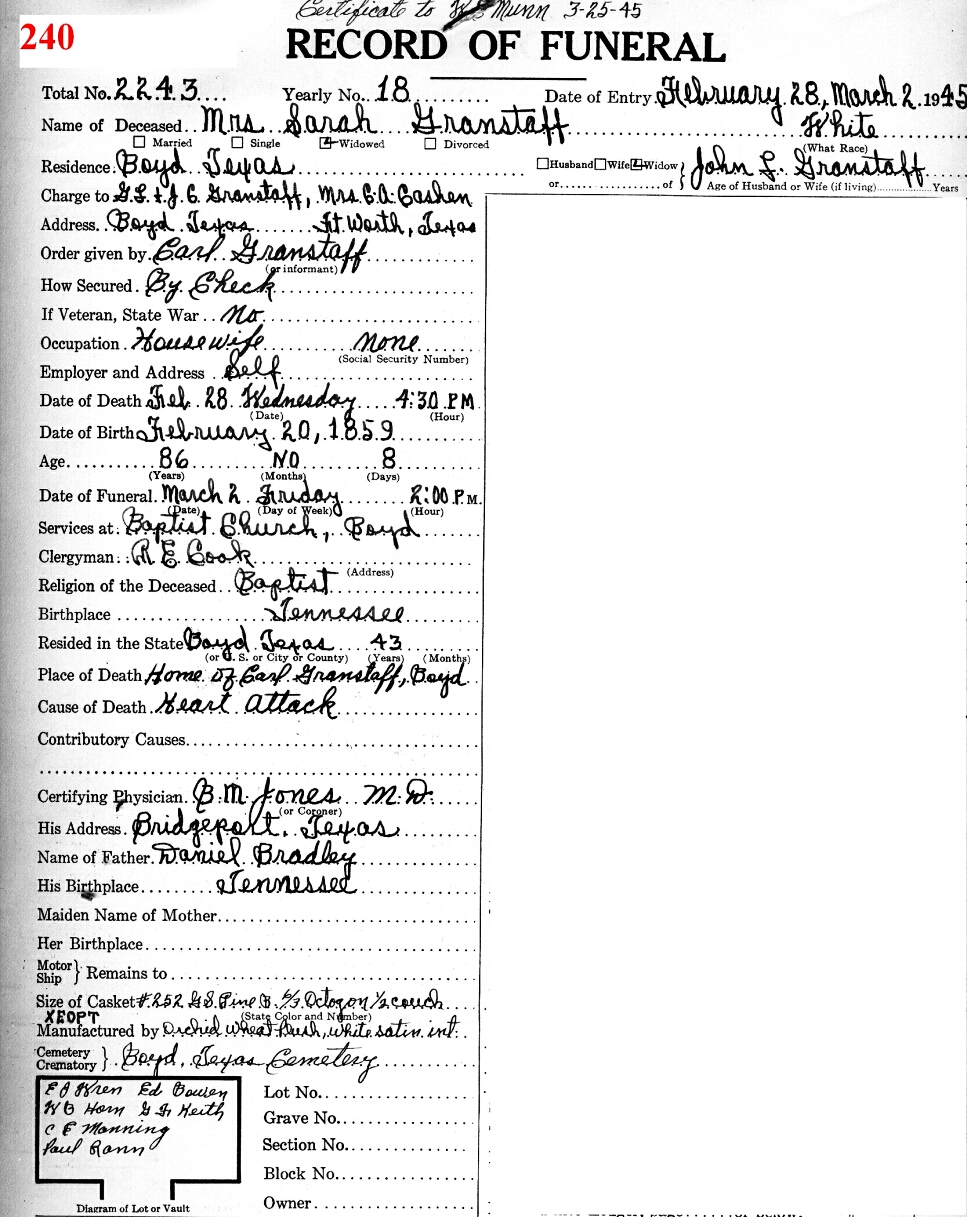 Certificate to W E Munn 3-25-45
240
RECORD OF FUNERAL
Total No. 2243 Yearly No. 18 Date of Entry February 28, March 2 1945
Name of Deceased Mrs Sarah Granstaff White
Married Single Widowed Divorced (What Race)
Residence Boyd Texas Husband Wife Widow } John L. Granstaff
or of Age of Husband or Wife (if living) Years
Charge to G.L. & J.C. Granstaff, Mrs. C.A. Cashen
Address Boyd Texas Ft Worth, Texas
Order given by Carl Granstaff
(or informant)
How Secured By Check
If Veteran, State War No
Occupation Housewife none
(Social Security Number)
Employer and Address Self
Date of Death Feb. 28 Wednesday 4:30 PM
(Date) (Hour)
Date of Birth February 20, 1859
Age 86 NO 8
(Years) (Months) (Days)
Date of Funeral March 2 Friday 2:00 P.M.
(Date) (Day of Week) (Hour)
Services at Baptist Church, Boyd
Clergyman R E Cook
(Address)
Religion of the Deceased Baptist
Birthplace Tennessee
Resided in the State Boyd Texas 43
(or U. S. or City or County) (Years) (Months)
Place of Death Home of Carl Granstaff, Boyd
Cause of Death Heart attack
Contributory Causes
Certifying Physician B.M. Jones M.D.
(or Coroner)
His Address Bridgeport, Texas
Name of Father Daniel Bradley
His Birthplace Tennessee
Maiden Name of Mother
Her Birthplace
Motor Ship } Remains to
Size of Casket #252 G.S. Pine B. 6/3 Octogon 1/2 couch
XEOPT (State Color and Number)
Manufactured by Orchid Wheat Plush, white satin int.
Cemetery Crematory } Boyd, Texas Cemetery
E A Wren Ed Bowen
W B Horn G H Keith
C E Manning
Paul Rann
Lot No.
Grave No.
Section No.
Block No.
Owner
Diagram of Lot or Vault